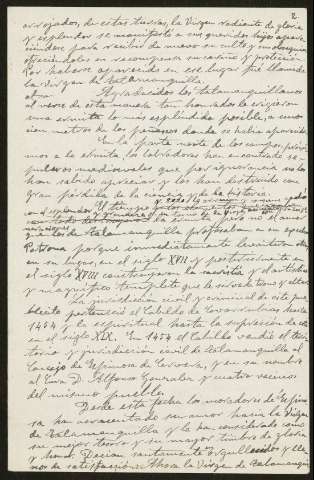 2
arrojados, de estas tierras, la Virgen radiante de gloria
y esplendor se manifestó a sus queridos hijos apare-
ciéndose para recibir de nuevo su culto y
ofreciéndoles en recompensa su cariño y protección.
Por haberse aparecido en ese lugar fué llamada
la Virgen de Talamanquilla.
otra. Agradecidos los talamanquillanos
al verse de esta manera tan honrados le erigieron
una ermita lo más espléndida posible, a unos
cien metros de los peñascos donde se había aparecido.
En la parte norte de los campos próxi-
mos a la ermita, los labradores han encontrado se-
pulcros medievales que por ignorancia no los
han sabido apreciar y los han destruido con
gran pérdida de la ciencia y de la historia.
El tiempo
la ermita pero no el amor
que los de Talamanquilla profesaban a su excelsa
Patrona porque inmediatamente levantaron otra
en su lugar, en el siglo XVII y posteriormente en
el siglo XVIII construyeron la sacristía y el artístico
y magnífico templete que le sirve de trono y altar.
La jurisdicción civil y criminal de este pue-
blecito perteneció al Cabildo de Covarrubias hasta
1454, y la espiritual hasta la supresión de este
en el siglo XIX. En 1454 el Cabildo vendió el terri-
torio y jurisdicción civil de Talamanquilla al
Concejo de Espinosa de Cervera, y en su nombre
al Cura D. Alfonso González y cuatro vecinos
del mismo pueblo.
Desde esta fecha los moradores de Espino-
sa han acrecentado su amor hacia la Virgen
de Talamanquilla y la han considerado como
su mejor tesoro y su mayor timbre de gloria
y honor. Decían santamente orgullosos y lle-
nos de satisfacción: Ahora la Virgen de Talamanqui-